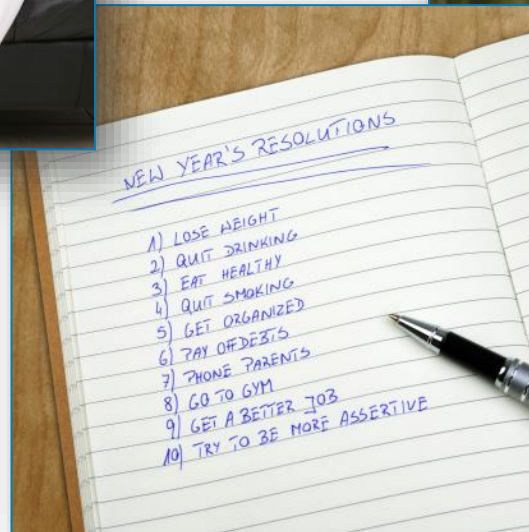 NEW YEAR'S RESOLUTIONS
1) LOSE WEIGHT
2) QUIT DRINKING
3) EAT HEALTHY
4) QUIT SMOKING
5) GET ORGANIZED
6) PAY OFF DEBTS
7) PHONE PARENTS
8) GO TO GYM
9) GET A BETTER JOB
10) TRY TO BE MORE ASSERTIVE